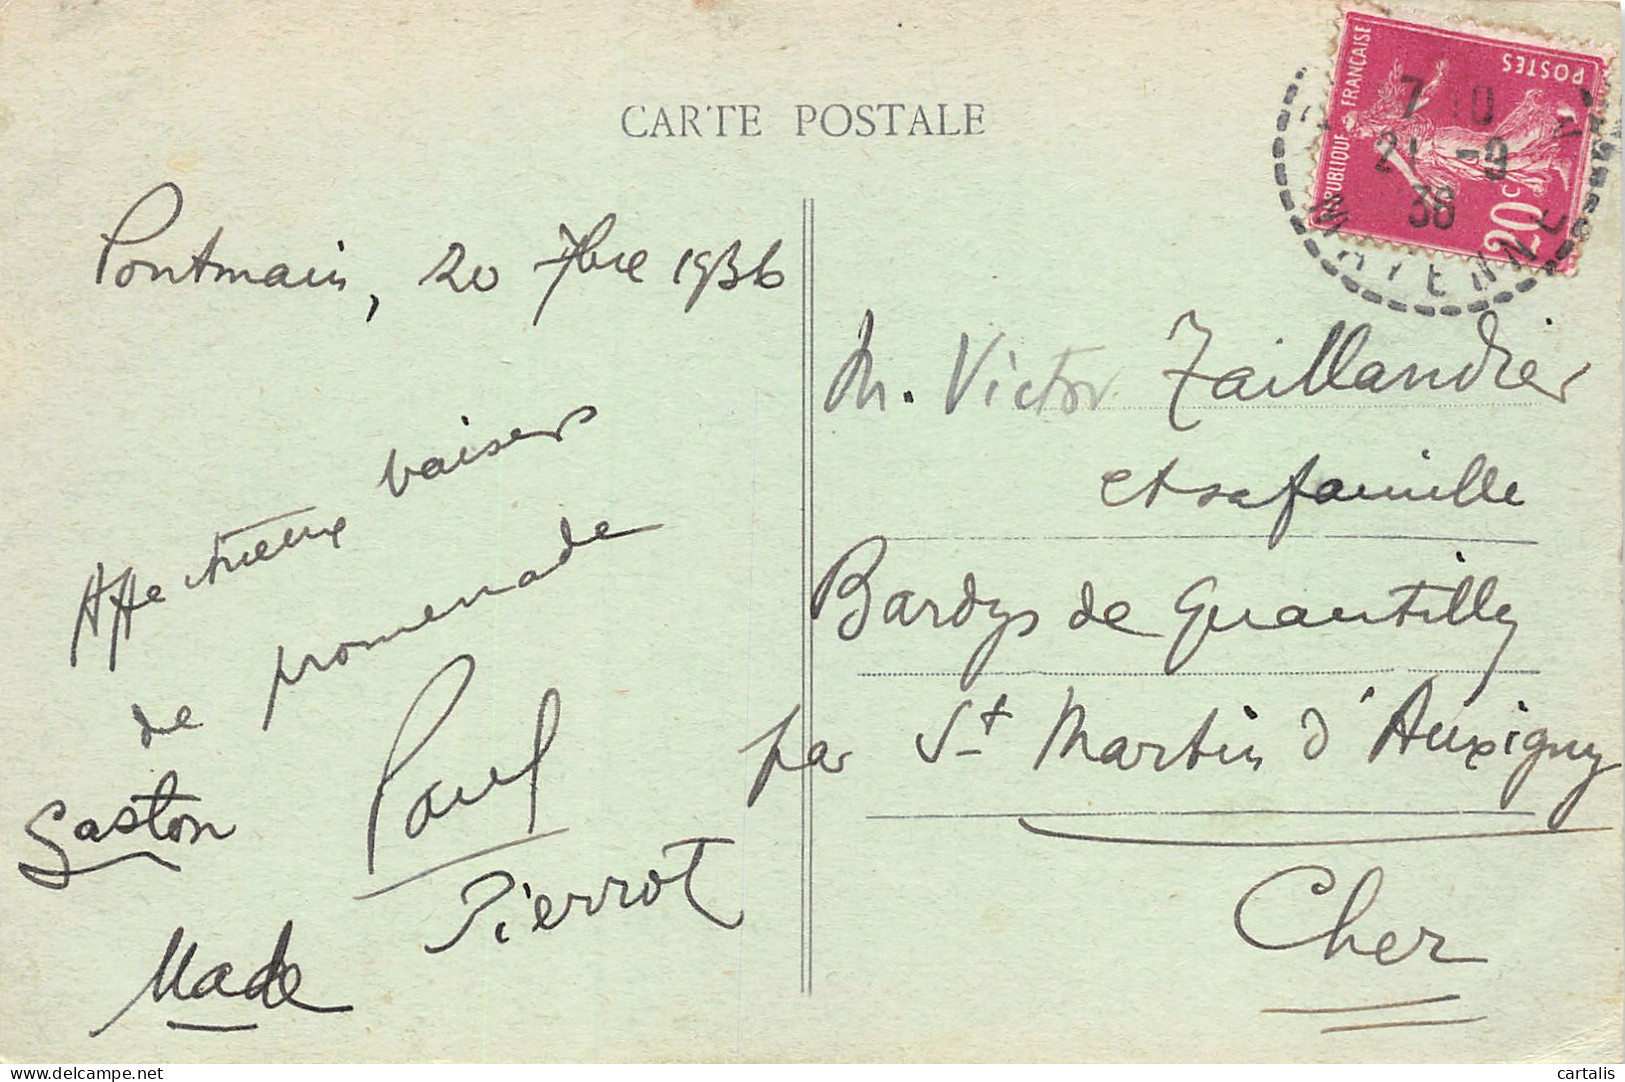 CARTE POSTALE
RÉPUBLIQUE FRANÇAISE
POSTES
20c
7 10
21 -9
36
MAYENNE
Pontmain, 20 7bre 1936
Affectueux baisers
de promenade
Gaston
Paul
Pierrot
Made
M. Victor Taillandier
et sa famille
Bardys de Quantilly
par St Martin d'Auxigny
Cher
delcampe.net
cartalis